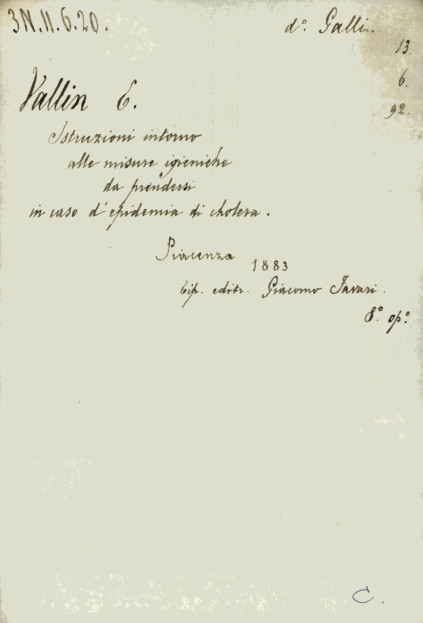 3N.11.6.20. d°. Galli.
13.
6.
92.
Vallin E.
Istruzioni intorno
alle misure igieniche
da prendersi
in caso d'epidemia di cholera.
Piacenza 1883
tip. editr. Giacomo Favari.
8° op°
C.